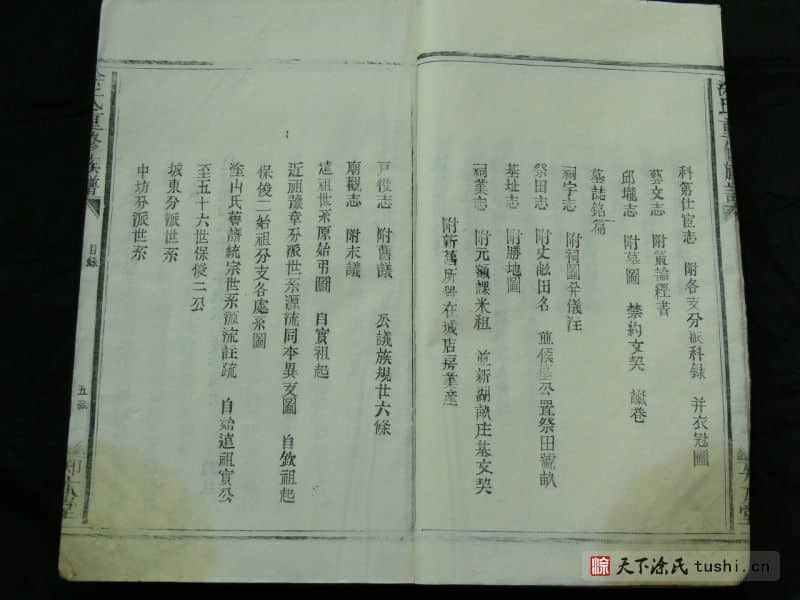 科第仕宦志　附各支分派科錄　并衣冠圖
藝文志　附策論經書
邱壠志　附墓圖　禁約文契　讞卷
墓誌銘篇
祠宇志　附祠圖并儀注
祭田志　附史 田名　並 公置祭田號畝
基址志　附勝地圖
祠業志　附元額課米租　並新湖畝庄基文契
附新舊所 在城店房業產
戸役志　附舊議　公議族規廿六條
廟觀志　附末議
遠祖世系原始弔圖　自實祖起
近祖豫章分派世系源流同本異支圖　自欽祖起
保俊二始祖分支各處系圖
塗山氏舊譜統宗世系源流註疏　自始遠祖實公
至五十六世保俊二公
城東分派世系
中坊分派世系
重修族譜
目錄
五
天下涂氏 tushi.cn